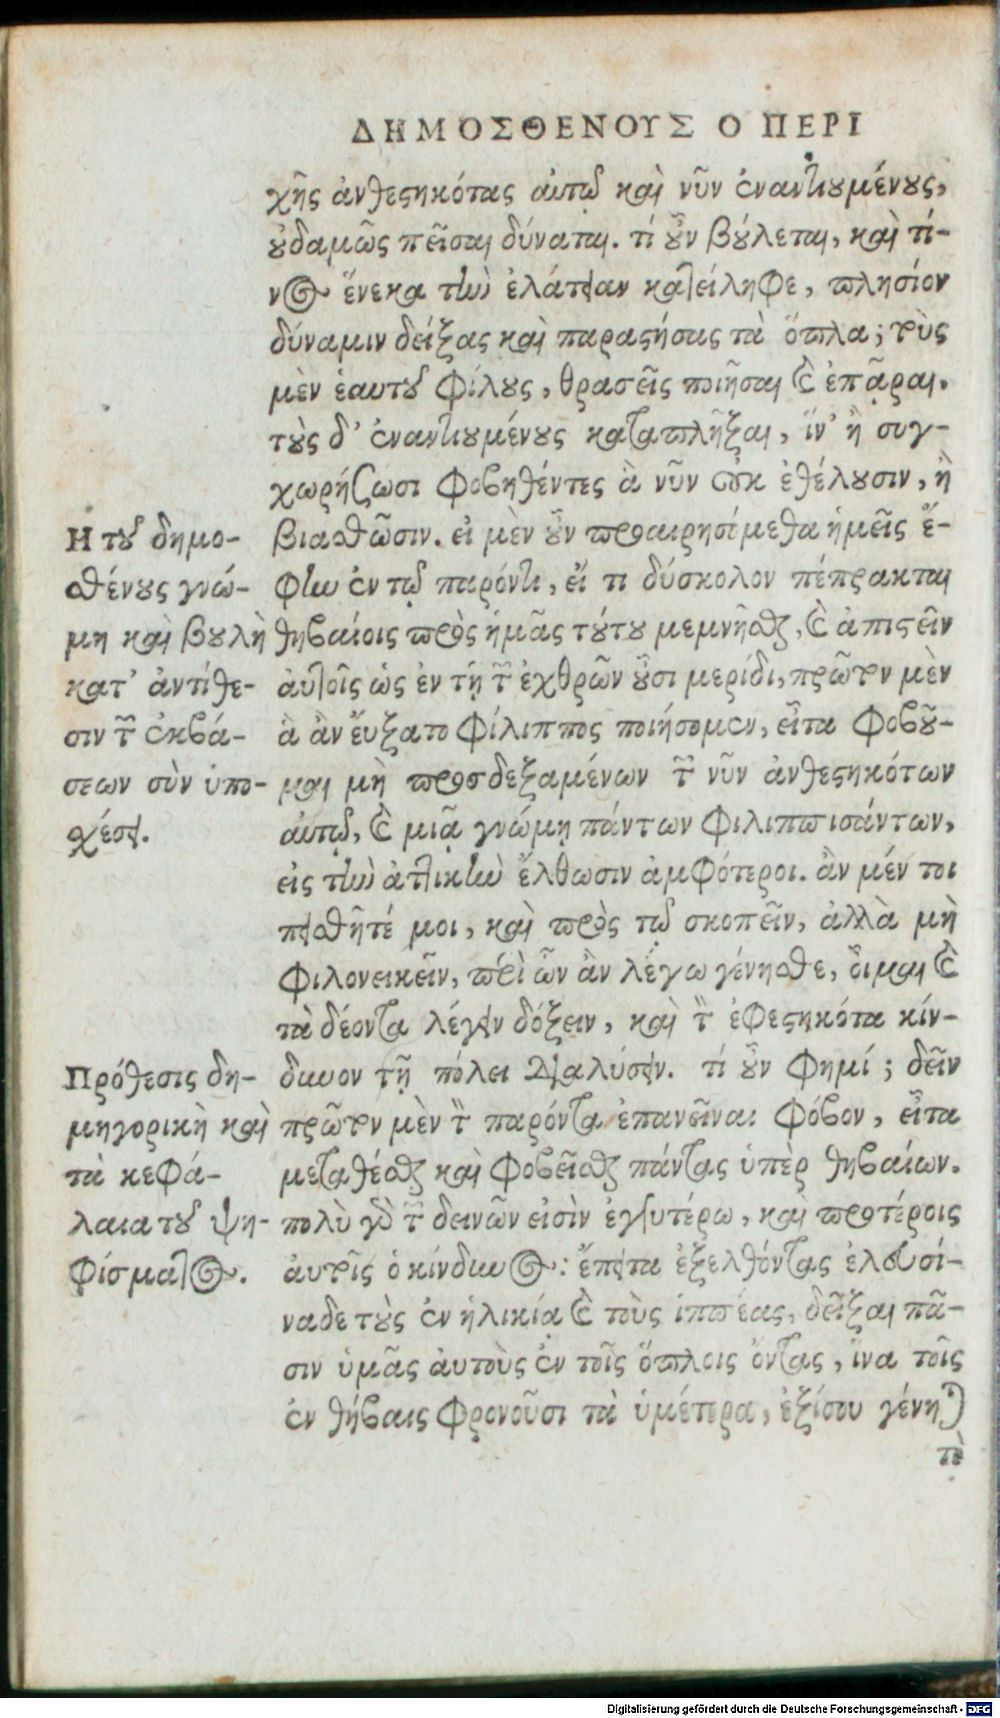 ΔΗΜΟΣΘΕΝΟΥΣ Ο ΠΕΡΙ
χῆς ἀνθεστηκότας αὐτῷ καὶ νῦν ἐναντιουμένους,
οὐδαμῶς πεῖσαι δύναται. τί οὖν βούλεται, καὶ τί-
νος ἕνεκα τὴν ἐλάτειαν κατείληφε, πλησίον
δύναμιν δείξας καὶ παραστήσας τὰ ὅπλα; τοὺς
μὲν ἑαυτοῦ φίλους, θρασεῖς ποιῆσαι καὶ ἐπᾶραι.
τοὺς δ' ἐναντιουμένους καταπλῆξαι, ἵν' ἢ συγ-
χωρήσωσι φοβηθέντες ἃ νῦν οὐκ ἐθέλουσιν, ἢ
βιασθῶσιν. εἰ μὲν οὖν προαιρησόμεθα ἡμεῖς ἔ-
φην ἐν τῷ παρόντι, εἴ τι δύσκολον πέπρακται
θηβαίοις πρὸς ἡμᾶς τούτου μεμνῆσθαι, καὶ ἀπιστεῖν
αὐτοῖς ὡς ἐν τῇ τῶν ἐχθρῶν οὖσι μερίδι, πρῶτον μὲν
ἃ ἂν εὔξατο φίλιππος ποιήσομεν, εἶτα φοβοῦ-
μαι μὴ προσδεξαμένων τῶν νῦν ἀνθεστηκότων
αὐτῷ, καὶ μιᾷ γνώμῃ πάντων φιλιππισάντων,
εἰς τὴν ἀττικὴν ἔλθωσιν ἀμφότεροι. ἂν μέν τοι
πεισθῆτέ μοι, καὶ πρὸς τῷ σκοπεῖν, ἀλλὰ μὴ
φιλονεικεῖν, περὶ ὧν ἂν λέγω γένησθε, οἶμαι καὶ
τὰ δέοντα λέγειν δόξειν, καὶ τὸν ἐφεστηκότα κίν-
δυνον τῇ πόλει διαλύσειν. τί οὖν φημί; δεῖν
πρῶτον μὲν τὸν παρόντα ἐπανεῖναι φόβον, εἶτα
μεταθέσθαι καὶ φοβεῖσθαι πάντας ὑπὲρ θηβαίων.
πολὺ γὰρ τῶν δεινῶν εἰσὶν ἐγγυτέρω, καὶ προτέροις
αὐτοῖς ὁ κίνδυνος: ἔπειτα ἐξελθόντας ἐλευσί-
ναδε τοὺς ἐν ἡλικίᾳ καὶ τοὺς ἱππέας, δεῖξαι πᾶ-
σιν ὑμᾶς αὐτοὺς ἐν τοῖς ὅπλοις ὄντας, ἵνα τοῖς
ἐν θήβαις φρονοῦσι τὰ ὑμέτερα, ἐξίσου γένηται
τὸ
Η τοῦ δημο-
σθένους γνώ-
μη καὶ βουλὴ
κατ' ἀντίθε-
σιν τῶν ἐκβά-
σεων σὺν ὑπο-
χέσει.
Πρόθεσις δη-
μηγορικὴ καὶ
τὰ κεφά-
λαια τοῦ ψη-
φίσματος.
Digitalisierung gefördert durch die Deutsche Forschungsgemeinschaft - DFG